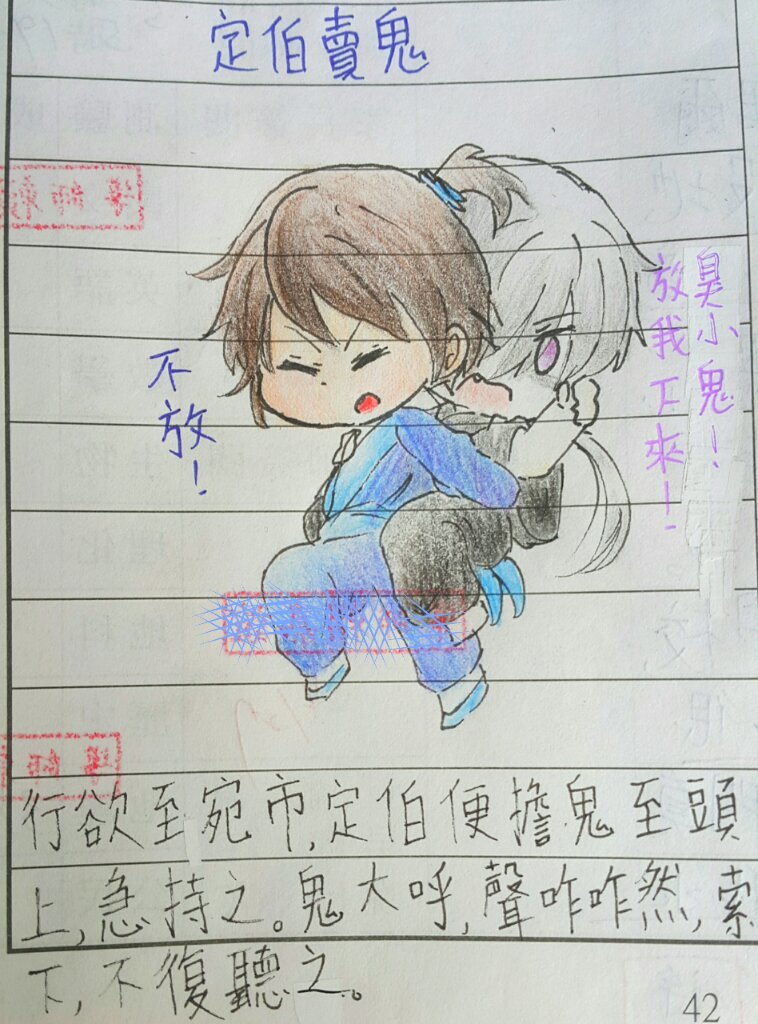 定伯賣鬼
臭小鬼！
放我下來！
不放！
行欲至宛市,定伯便擔鬼至頭
上,急持之。鬼大呼,聲咋咋然,索
下,不復聽之。
42